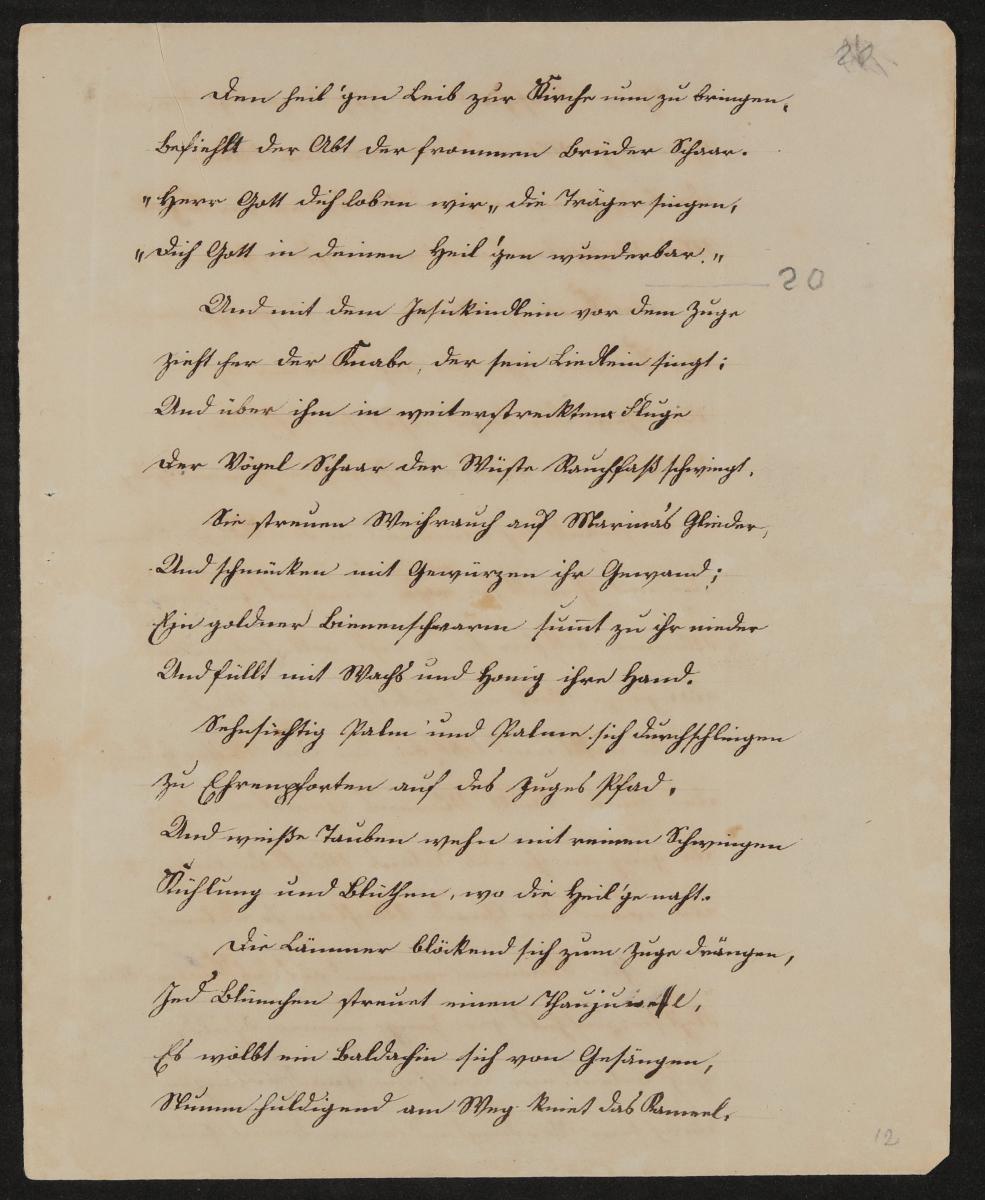 Den heil'gen Leib zur Kirche nun zu bringen,
Befiehlt der Abt der frommen Brüder Schaar.
"Herr Gott dich loben wir" die Träger singen,
"Dich Gott in deinen Heil'gen wunderbar."
20
Und mit dem Jesukindlein vor dem Zuge
Zieht her der Knabe, der sein Liedlein singt;
Und über ihm in weiterstrecktem Fluge
Der Vögel Schaar der Wüste Rauchfaß schwingt.
Sie streuen Weihrauch auf Marina's Glieder,
Und schmücken mit Gewürzen ihr Gewand;
Ein goldner Bienenschwarm sum̄t zu ihr nieder
Und füllt mit Wachs und Honig ihre Hand.
Sehnsüchtig Palm' und Palme sich durchschlingen
Zu Ehrenpforten auf des Zuges Pfad,
Und weiße Tauben wehn mit reinen Schwingen
Kühlung und Blüthen, wo die Heil'ge naht.
Die Lämmer blöckend sich zum Zuge drängen,
Jed' Blümchen streuet einen Thaujuwel,
Es wölbt ein Baldachin sich von Gesängen,
Stumm huldigend am Weg kniet das Kameel.
12